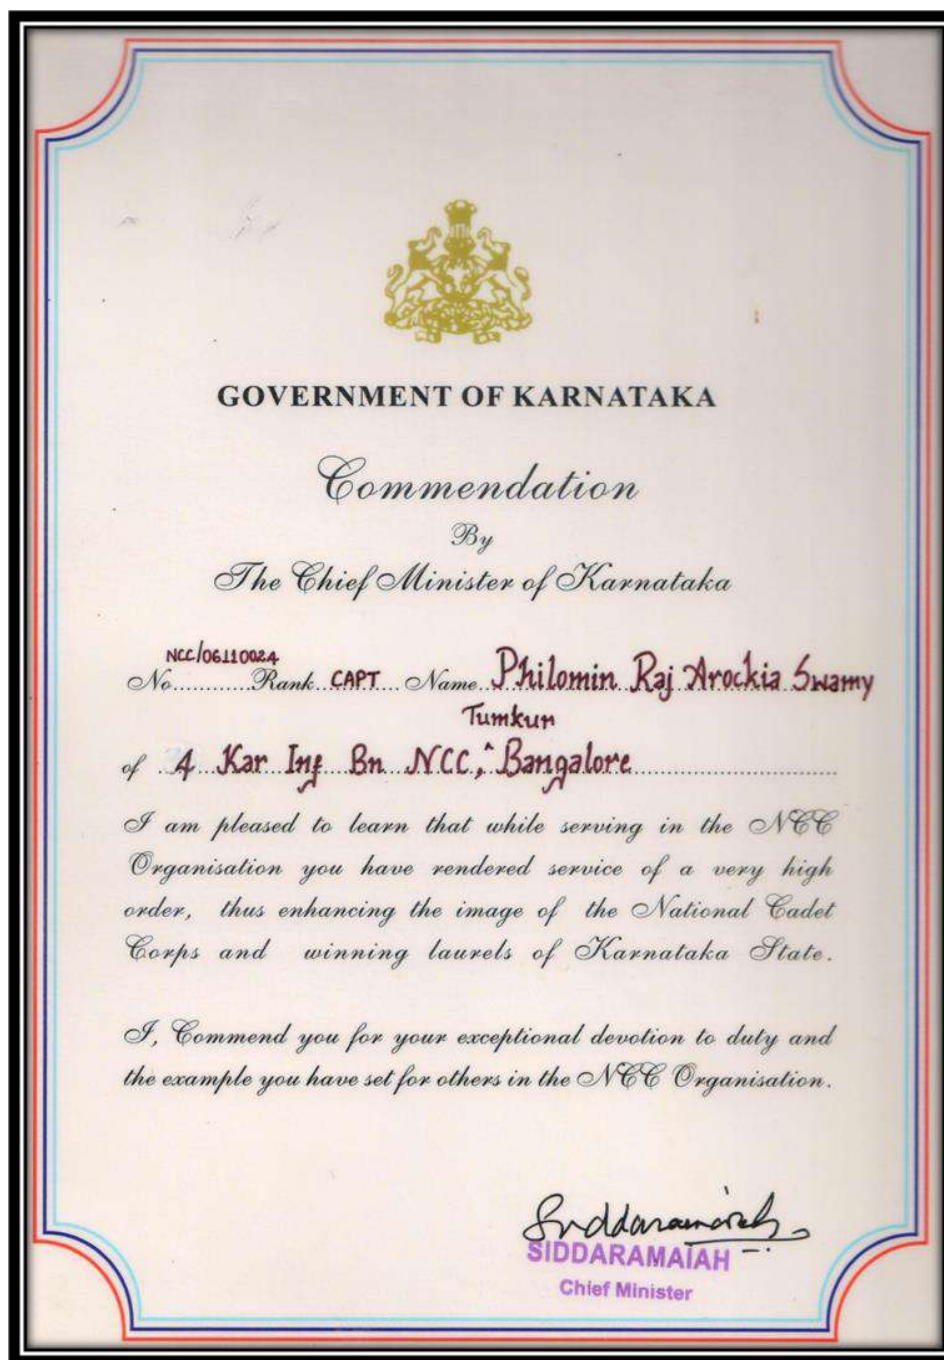 GOVERNMENT OF KARNATAKA
Commendation
By
The Chief Minister of Karnataka
NCC/06110024
No.......... Rank CAPT Name Philomin Raj Arockia Swamy
Tumkur
of 4 Kar Inf Bn NCC,^ Bangalore
I am pleased to learn that while serving in the NCC
Organisation you have rendered service of a very high
order, thus enhancing the image of the National Cadet
Corps and winning laurels of Karnataka State.
I, Commend you for your exceptional devotion to duty and
the example you have set for others in the NCC Organisation.
Siddaramaiah
SIDDARAMAIAH
Chief Minister